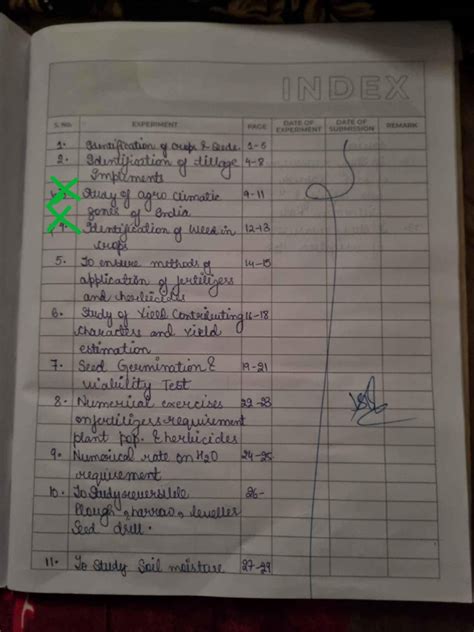 INDEX
S. No. EXPERIMENT PAGE DATE OF EXPERIMENT DATE OF SUBMISSION REMARK
1. Identification of crops & Seeds 1-3
2. Identification of tillage 4-8
Impliments
3. Study of agro climatic 9-11
zones of India
4. Identification of Weed in 12-13
crops
5. To ensure methods of 14-15
application of fertilizers
and herbicides
6. Study of Yield Contributing 16-18
characters and yield
estimation
7. Seed Germination & 19-21
Viability Test
8. Numerical exercises 22-23
on fertilizers requirement
plant pop. & herbicides
9. Numerical rate on H2O 24-25
requirement
10. To Study reversible 26-
Plough, harrow, leveller
Seed drill.
11. To Study Soil moisture 27-29